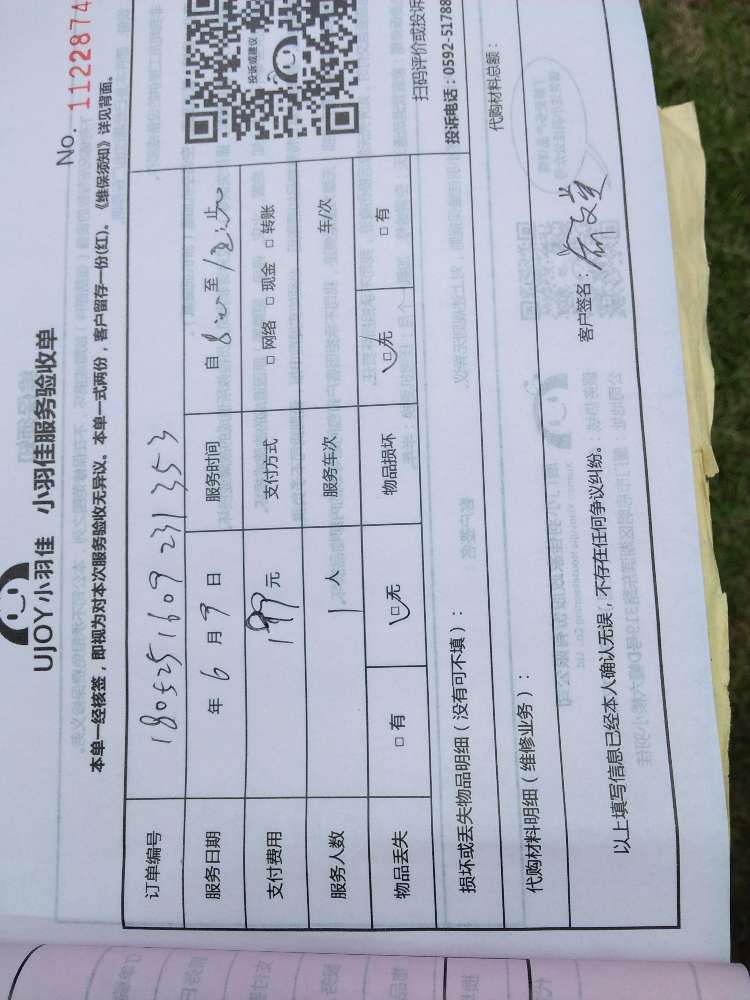 UJOY小羽佳 小羽佳服务验收单
No. 1122874
本单一经核签，即视为对本次服务验收无异议。本单一式两份，客户留存一份(红)。《维保须知》详见背面。
订单编号 1805251609231353
服务日期 年 6 月 9 日 服务时间 自 8:00 至 12:00 止
支付费用 199 元 支付方式 □ 网络 □ 现金 □ 转账
服务人数 1 人 服务车次 车/次
物品丢失 □ 有 □ 无 物品损坏 □ 无 □ 有
投诉或建议
扫码评价或投诉
损坏或丢失物品明细（没有可不填）：
投诉电话：0592-51788
代购材料明细（维修业务）：
代购材料总额：
以上填写信息已经本人确认无误，不存在任何争议纠纷。
客户签名：